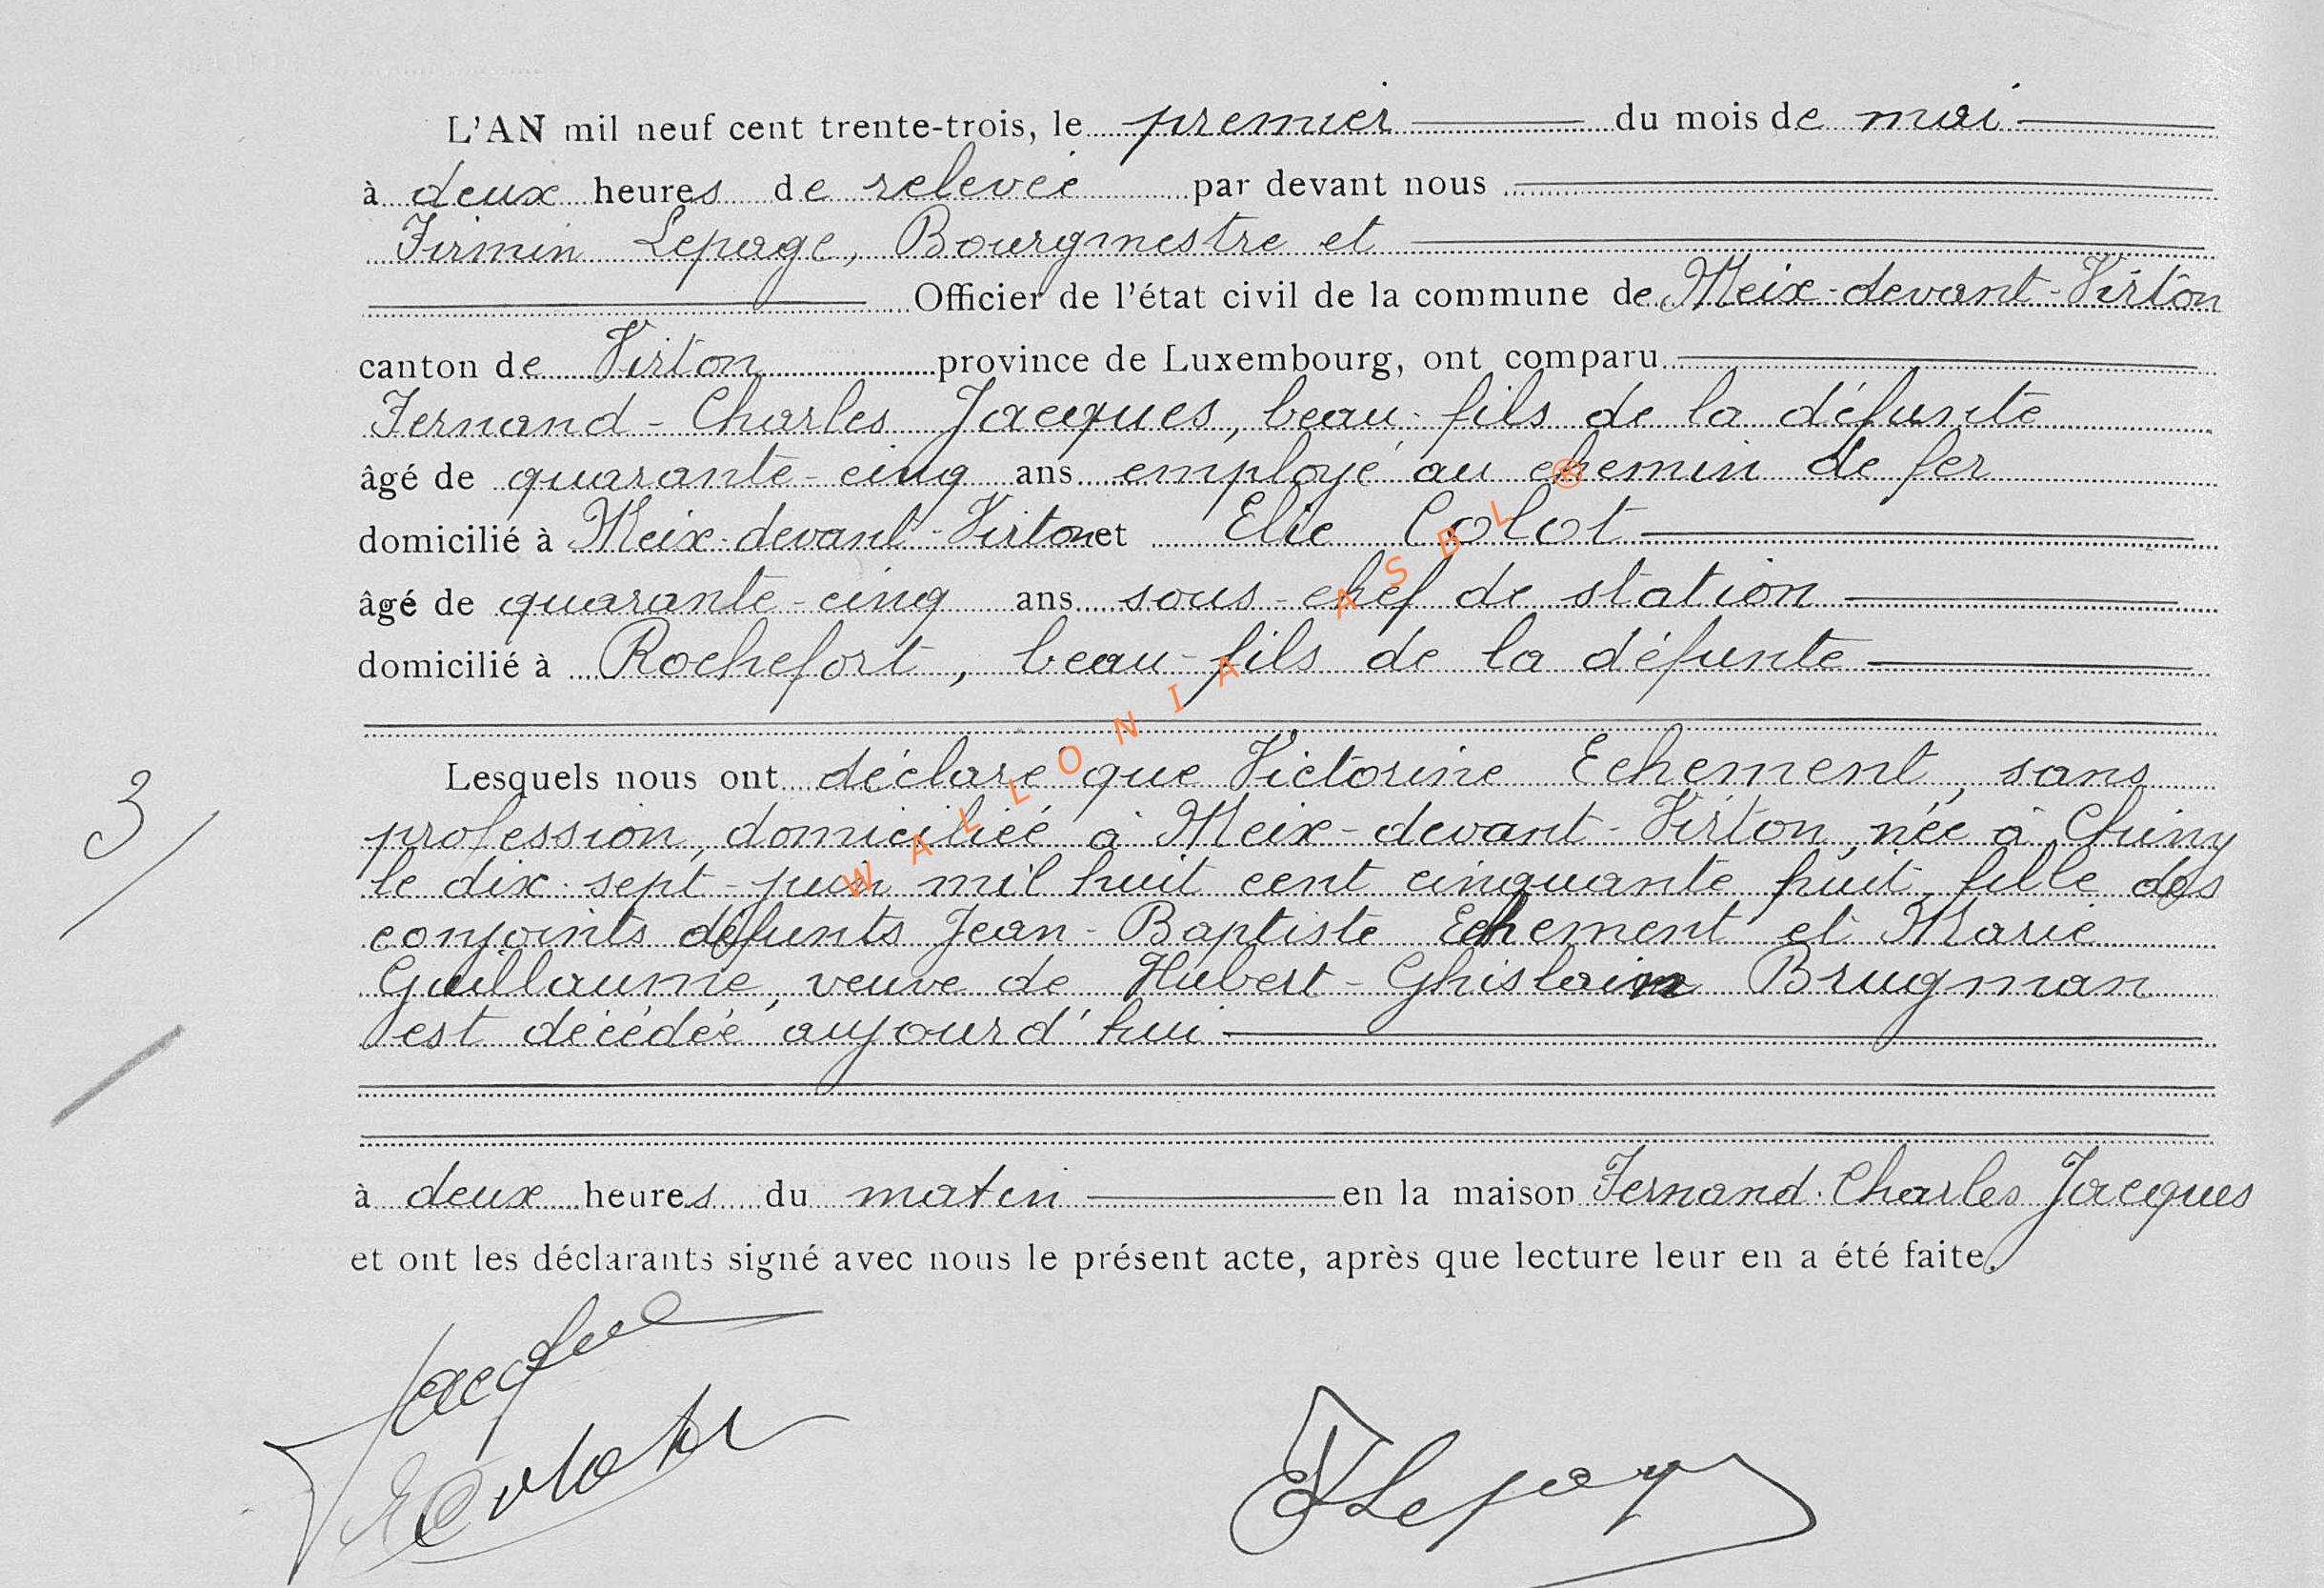 L'AN mil neuf cent trente-trois, le premier du mois de mai
à deux heures de relevée par devant nous
Firmin Lepage, Bourgmestre et
Officier de l'état civil de la commune de Meix-devant-Virton
canton de Virton province de Luxembourg, ont comparu
Fernand-Charles Jacques, beau-fils de la défunte
âgé de quarante-cinq ans employé au chemin de fer
domicilié à Meix-devant-Virton et Elie Colot
âgé de quarante-cinq ans sous-chef de station
domicilié à Rochefort, beau-fils de la défunte
Lesquels nous ont déclaré que Victorine Echement, sans
profession, domiciliée à Meix-devant-Virton, née à Chiny
le dix-sept-juin mil huit cent cinquante huit, fille des
3/
conjoints défunts Jean-Baptiste Echement et Marie
Guillaume, veuve de Hubert-Ghislain Brugman
est décédée aujourd'hui
à deux heures du matin en la maison Fernand-Charles Jacques
et ont les déclarants signé avec nous le présent acte, après que lecture leur en a été faite.
Jacques
E Colot
F Lepage
WALLONIA ASBL ®